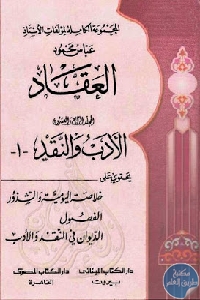 المجموعة الكاملة لمؤلفات الأستاذ
عباس محمود
العقاد
المجلد الرابع والعشرون
الأدب والنقد
-١-
يحتوي على
خلاصة اليومية والشذور
الفصول
الديوان في النقد والأدب
دار الكتاب اللبناني
دار الكتاب المصري
بيروت
القاهرة
مكتبة
طريق العلم